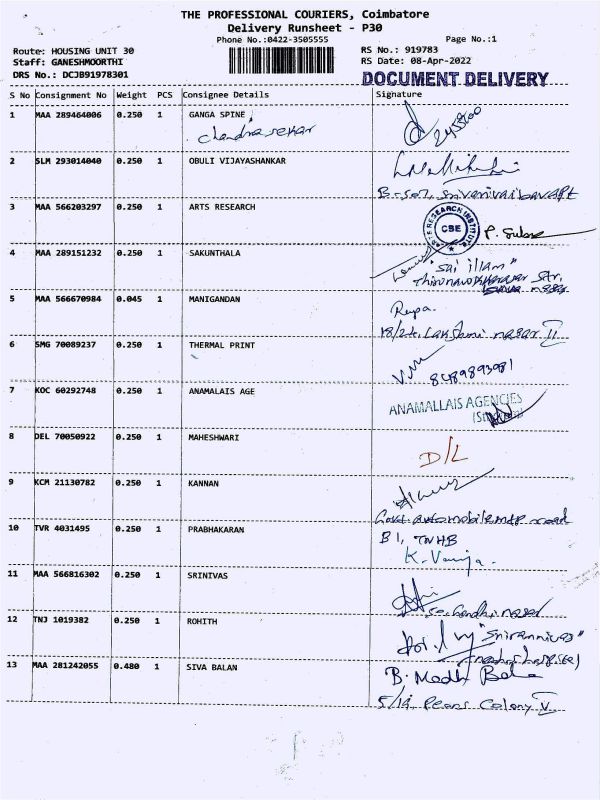 THE PROFESSIONAL COURIERS, Coimbatore
Delivery Runsheet - P30
Phone No.:0422-3505555
Page No.:1
Route: HOUSING UNIT 30
RS No.: 919783
Staff: GANESHMOORTHI
RS Date: 08-Apr-2022
DRS No.: DCJB91978301
DOCUMENT DELIVERY
S No Consignment No Weight PCS Consignee Details Signature
1 MAA 289464006 0.250 1 GANGA SPINE
chandra sekar
2 SLM 293014040 0.250 1 OBULI VIJAYASHANKAR
3 MAA 566203297 0.250 1 ARTS RESEARCH
ARTS RESEARCH INSTITUTE CBE
4 MAA 289151232 0.250 1 SAKUNTHALA
"Sai illam"
5 MAA 566670984 0.045 1 MANIGANDAN
Rupa.
Lakshmi nagar II
6 SMG 70089237 0.250 1 THERMAL PRINT
8489893981
7 KOC 60292748 0.250 1 ANAMALAIS AGE
ANAMALLAIS AGENCIES
8 DEL 70050922 0.250 1 MAHESHWARI
D/L
9 KCM 21130782 0.250 1 KANNAN
Govt automobile road
10 TVR 4031495 0.250 1 PRABHAKARAN
B1, TNHB
K. Vanija.
11 MAA 566816302 0.250 1 SRINIVAS
12 TNJ 1019382 0.250 1 ROHITH
13 MAA 281242055 0.480 1 SIVA BALAN
B. Madhu Bala
5/19, Pears Colony V